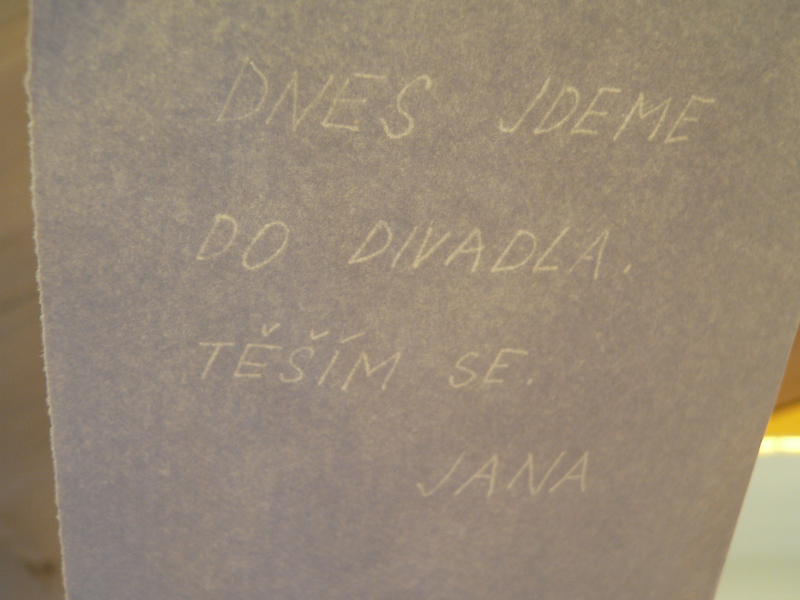 DNES JDEME
DO DIVADLA.
TĚŠÍM SE.
JANA